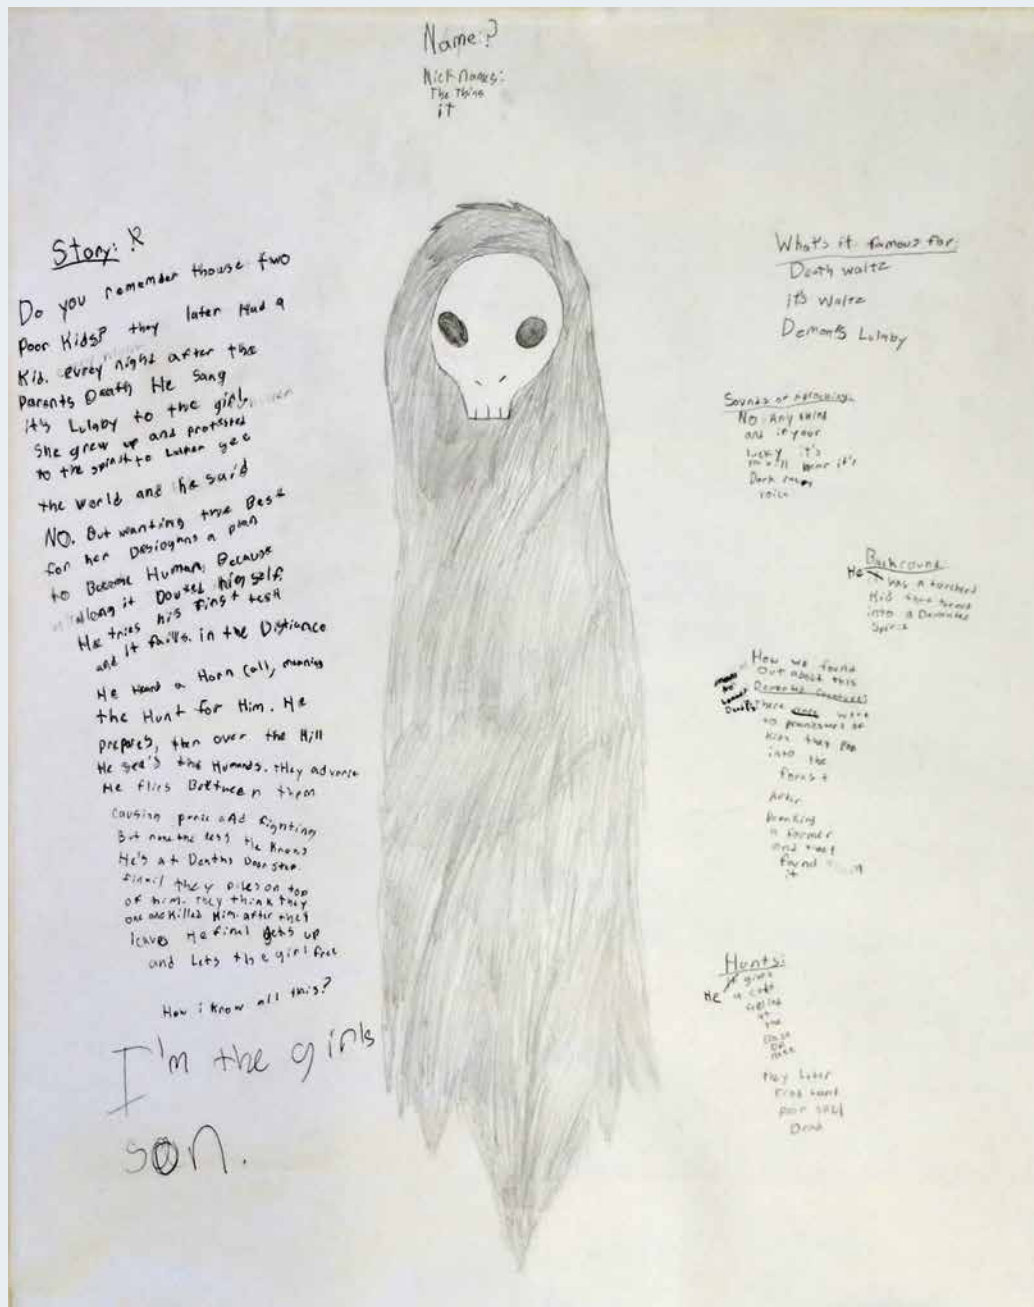 Name:?
Nick Names:
The Thing
it
Story:
Do you rememder thouse two
Poor Kids? they later Had a
Kid. evrey night after the
Parents Death He Sang
it's Lulaby to the girl.
She grew up and protested
to the to
the world and he said
NO. But wanting true Best
for her Desiogns a plan
to Become Human, Because
along it Douted himself.
He tries his first test
and it fails. in the Distiance
He Heard a Horn Call, meaning
the Hunt for Him. He
prepares, then over the Hill
He see's the Humands. they advance
He flies Bettween them
causing panic and fighting
But nonetheless He Knows
He's at Deaths Door step.
finall they piles on top
of him. they think they
Killed Him. after they
leave He final gets up
and Lets the girl free
How i know all this?
I'm the girls
son.
What's it famous for:
Death waltz
it's Waltz
Demon's Lulaby
Sounds of
No. Any
and if your
lucky it's
hear it's
Dark
voice
Backround
He was a
Kid that
into a Demented
Spirit
How we found
out about this
Demented Creature
There were
to of
Kids they
into the
forest
After
a farmer
and
found
it
Hunts:
it gives
He a
at
the
they Later
find
poor soul
Dead